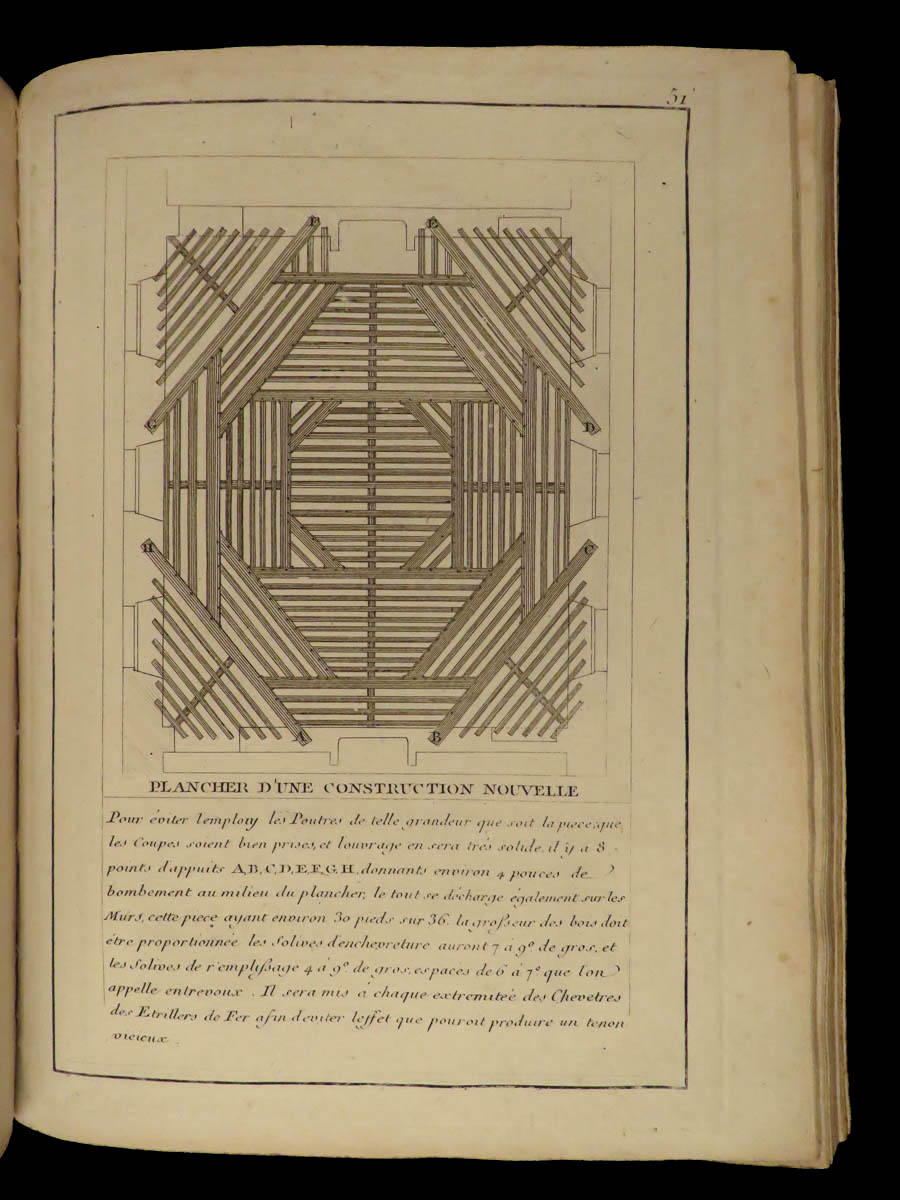 51
F E
G D
H C
A B
PLANCHER D'UNE CONSTRUCTION NOUVELLE
Pour éviter lemploiy les Poutres de telle grandeur que soit la piece, que
les Coupes soient bien prises, et l'ouvrage en sera trés solide, il y a 8
points d'appuits A, B, C, D, E, F, G, H, donnants environ 4 pouces de
bombement au milieu du plancher, le tout se décharge également sur les
Murs, cette piece ayant environ 30 pieds sur 36. la grosseur des bois doit
étre proportionnée les Solives d'enchevreture auront 7 á 9º de gros, et
les Solives de remplissage 4 á 9º. de gros, espacés de 6 á 7º que lon
appelle entrevoux. Il sera mis á chaque extremiteé des Chevetres
des Etrillers de Fer afin d'eviter leffet que pouroit produire un tenon
vicieux.